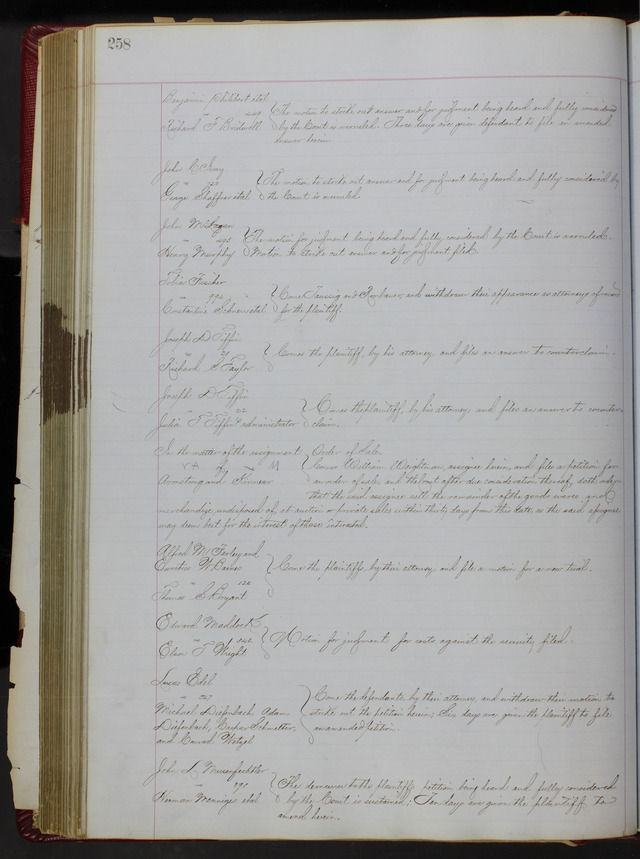 258
Benjamin et al
Richard F Bridwell The motion to strike out answer and for judgment being heard and fully considered
by the Court is overruled. Three days are given defendant to file an amended
answer herein.
John C
George Shaffner et al The motion to strike out answer and for judgment being heard and fully considered by
the Court is overruled.
John
Henry Murphy The motion for judgment being heard and fully considered by the Court is overruled.
Motion to strike out answer and for judgment filed.
Tobias
Constantine et al Come and and withdraw their appearance as attorneys of record
for the plaintiff.
Joseph D Tiffin
Richard S Taylor Comes the plaintiff by his attorney and files an answer to counterclaim.
Joseph D Tiffin
Julia T Tiffin administrator Comes the plaintiff, by his attorney and files an answer to counter
claim.
In the matter of the assignment Order of Sale.
of Comes William Wrightman, assignee herein, and files a petition for
Armstrong and an order of sale, and the Court after due consideration thereof, doth order
that the said assignee sell the remainder of the goods wares and
merchandize undisposed of, at auction or private sales within thirty days from this date, as the said assignee
may deem best for the interest of those interested.
Alfred M Farley and
W Barnes Come the plaintiffs, by their attorney and file a motion for a new trial.
Thomas S Bryant
Edward Maddock
T Wright Motion for judgment for costs against the security filed.
Edel
Michael Diefenbach, Adam Come the defendants by their attorney, and withdraw their motion to
Diefenbach, strike out the petition herein; Six days are given the plaintiff to file
and Conrad Wetzel an amended petition.
John L
Herman et al The demurrer to the plaintiff's petition being heard and fully considered
by the Court is sustained; Ten days are given the plaintiff to
amend herein.